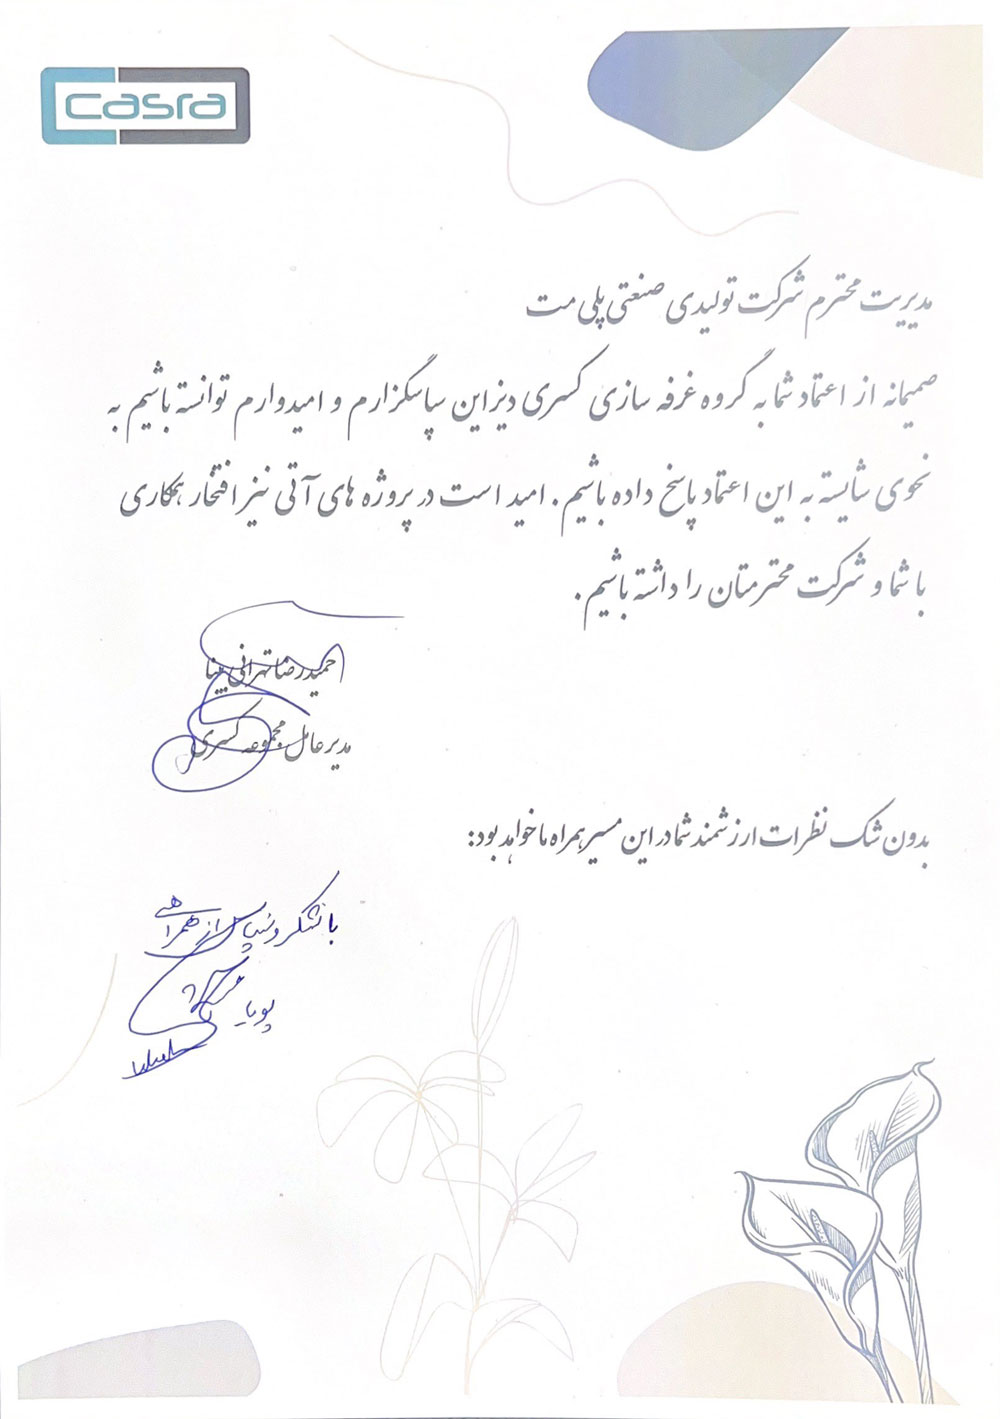 casra
مدیریت محترم شرکت تولیدی صنعتی پلی مت
صمیمانه از اعتماد شما به گروه غرفه سازی کسری دیزاین سپاسگزارم و امیدوارم توانسته باشیم به
نحوی شایسته به این اعتماد پاسخ داده باشیم. امید است در پروژه های آتی نیز افتخار همکاری
با شما و شرکت محترمتان را داشته باشیم.
احمیدرضا تهرانی بینا
مدیر عامل مجموعه کسری
بدون شک نظرات ارزشمند شما در این مسیر همراه ما خواهد بود:
با تشکر و سپاس از همراهی
پویا